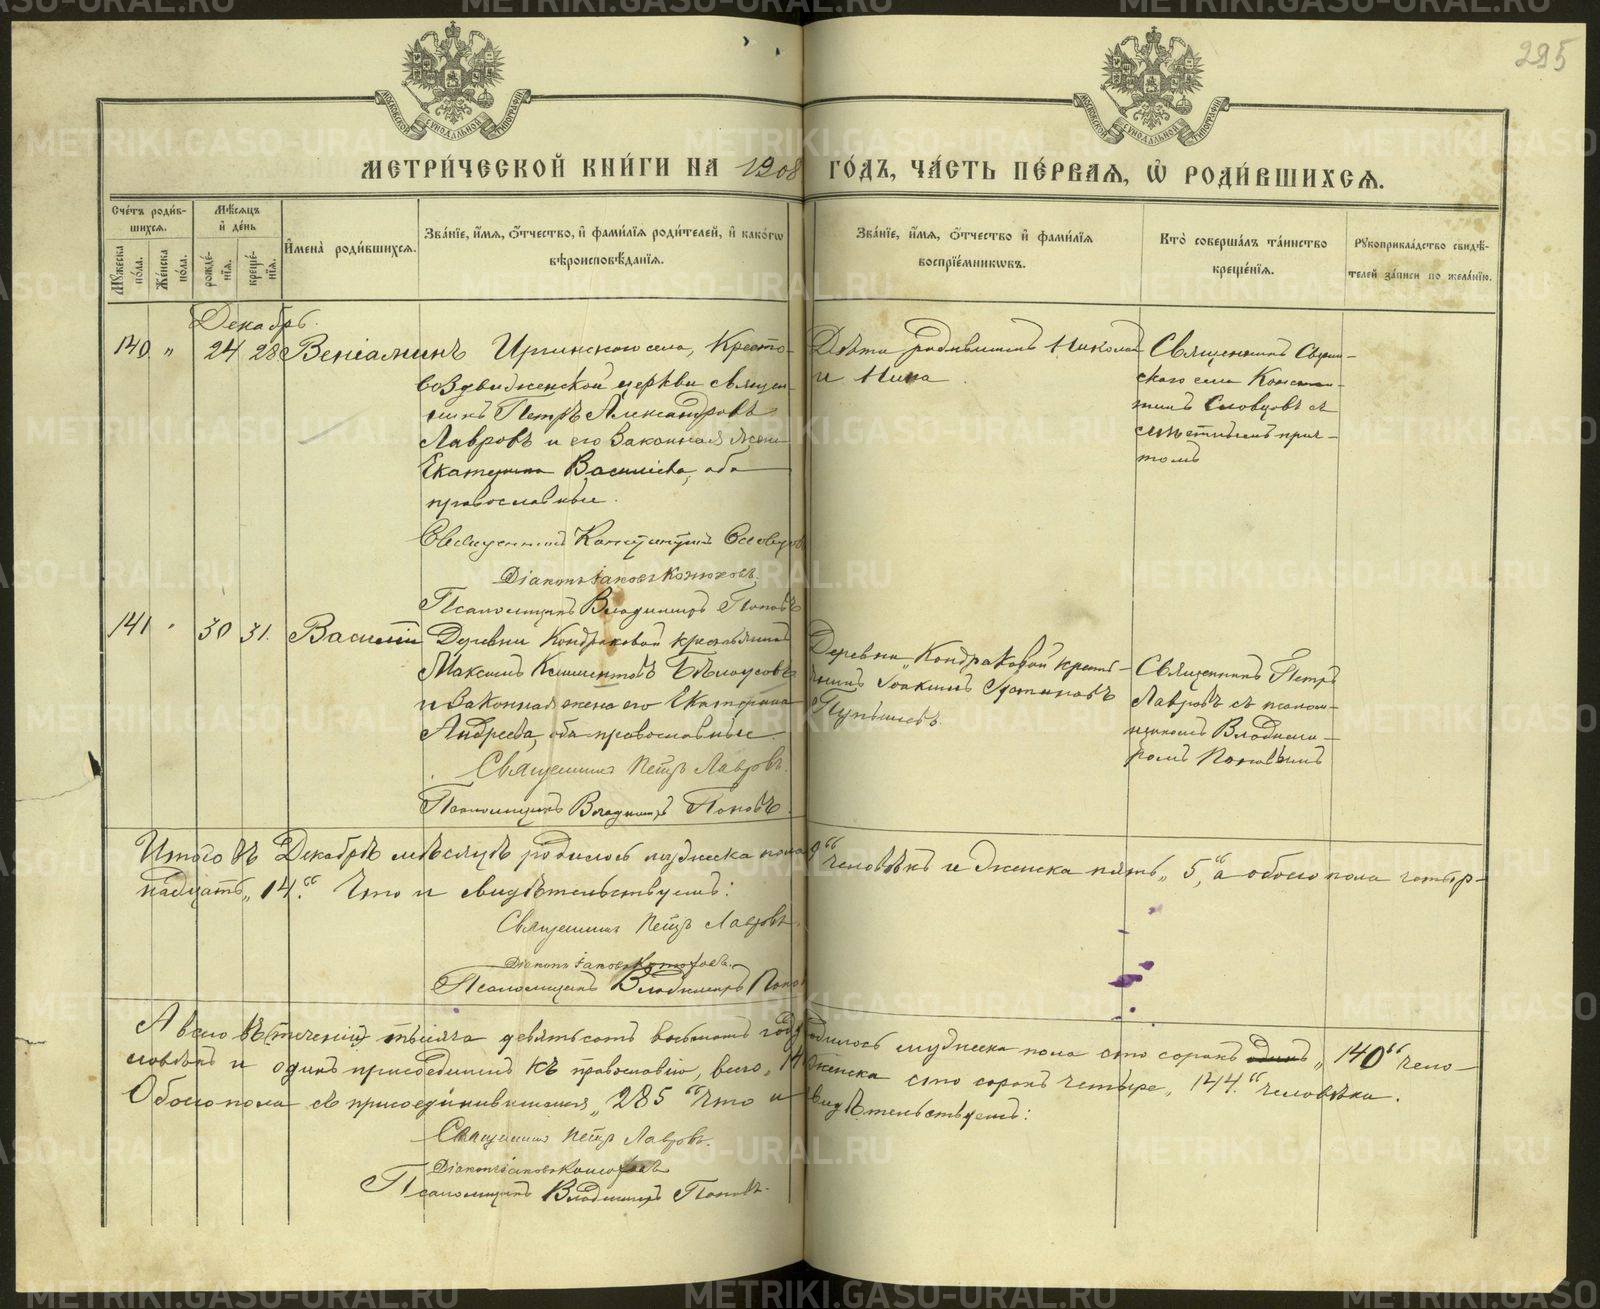 295
МОСКОВСКОЙ СУНОДАЛЬНОЙ ТИПОГРАФІИ
МОСКОВСКОЙ СУНОДАЛЬНОЙ ТИПОГРАФІИ
МЕТРИ́ЧЕСКОЙ КНИ́ГИ НА 1908 ГО́ДЪ, ЧА́СТЬ ПЕ́РВАЯ, Ѡ РОДИ́ВШИХСѦ.
Сче́тъ роди́в-
шихсѧ.
Мꙋ́жеска по́ла.
Же́нска по́ла.
Мѣ́сѧцъ
и҆ де́нь
рожде́-
нїѧ.
креще́-
нїѧ.
И҆мена̀ роди́вшихсѧ.
Зва́нїе, и҆́мѧ, ѻ҆́тчество, и҆ фами́лїѧ роди́телей, и҆ како́гѡ
вѣроисповѣ́данїѧ.
Зва́нїе, и҆́мѧ, ѻ҆́тчество и҆ фами́лїѧ
воспрїе́мникѡвъ.
Кто̀ соверша́лъ та́инство
креще́нїѧ.
Рꙋкоприкла́дство свидѣ́-
телей за́писи по жела́нїю.
Декабрь.
140 „ 24 28 Веніаминъ
Иргинскаго села, Кресто-
воздвиженской церкви священ-
никъ Петръ Александровъ
Лавровъ и его законная жена
Екатерина Васильева, оба
православные.
Священникъ Константинъ Словцовъ
Діаконъ Іаковъ Конюховъ.
Псаломщикъ Владимиръ Поповъ
Дѣти родившихъ Николай
и Нина.
Священникъ
скаго села Констан-
тинъ Словцовъ съ
мѣстнымъ прич-
томъ
141 „ 30 31. Василій
Деревни Кондраковой крестьянинъ
Максимъ Климентовъ Бѣлоусовъ
и законная жена его Екатерина
Андреева, оба православные.
Священникъ Петръ Лавровъ.
Псаломщикъ Владимиръ Поповъ.
Деревни Кондраковой кресть-
янинъ Іоакимъ Устиновъ
Священникъ Петръ
Лавровъ съ псалом-
щикомъ Владими-
ромъ Поповымъ
Итого въ Декабрѣ мѣсяцѣ родилось мужеска пола 9“ человѣкъ и женска пять „5“, а обоего пола четыр-
надцать „14“. Что и свидѣтельствуемъ:
Священникъ Петръ Лавровъ.
Діаконъ Іаковъ Конюховъ.
Псаломщикъ Владимиръ Поповъ
А всего въ теченіи тысяча девятьсотъ восьмаго года родилось мужеска пола сто сорокъ одинъ „140“ чело-
вѣкъ и одинъ присоединенъ къ православію, всего „ женска сто сорокъ четыре, „144“ человѣка.
Обоего пола съ присоединившимся „285“ Что и свидѣтельствуемъ:
Священникъ Петръ Лавровъ.
Діаконъ Іаковъ Конюховъ
Псаломщикъ Владимиръ Поповъ.
METRIKI.GASO-URAL.RU